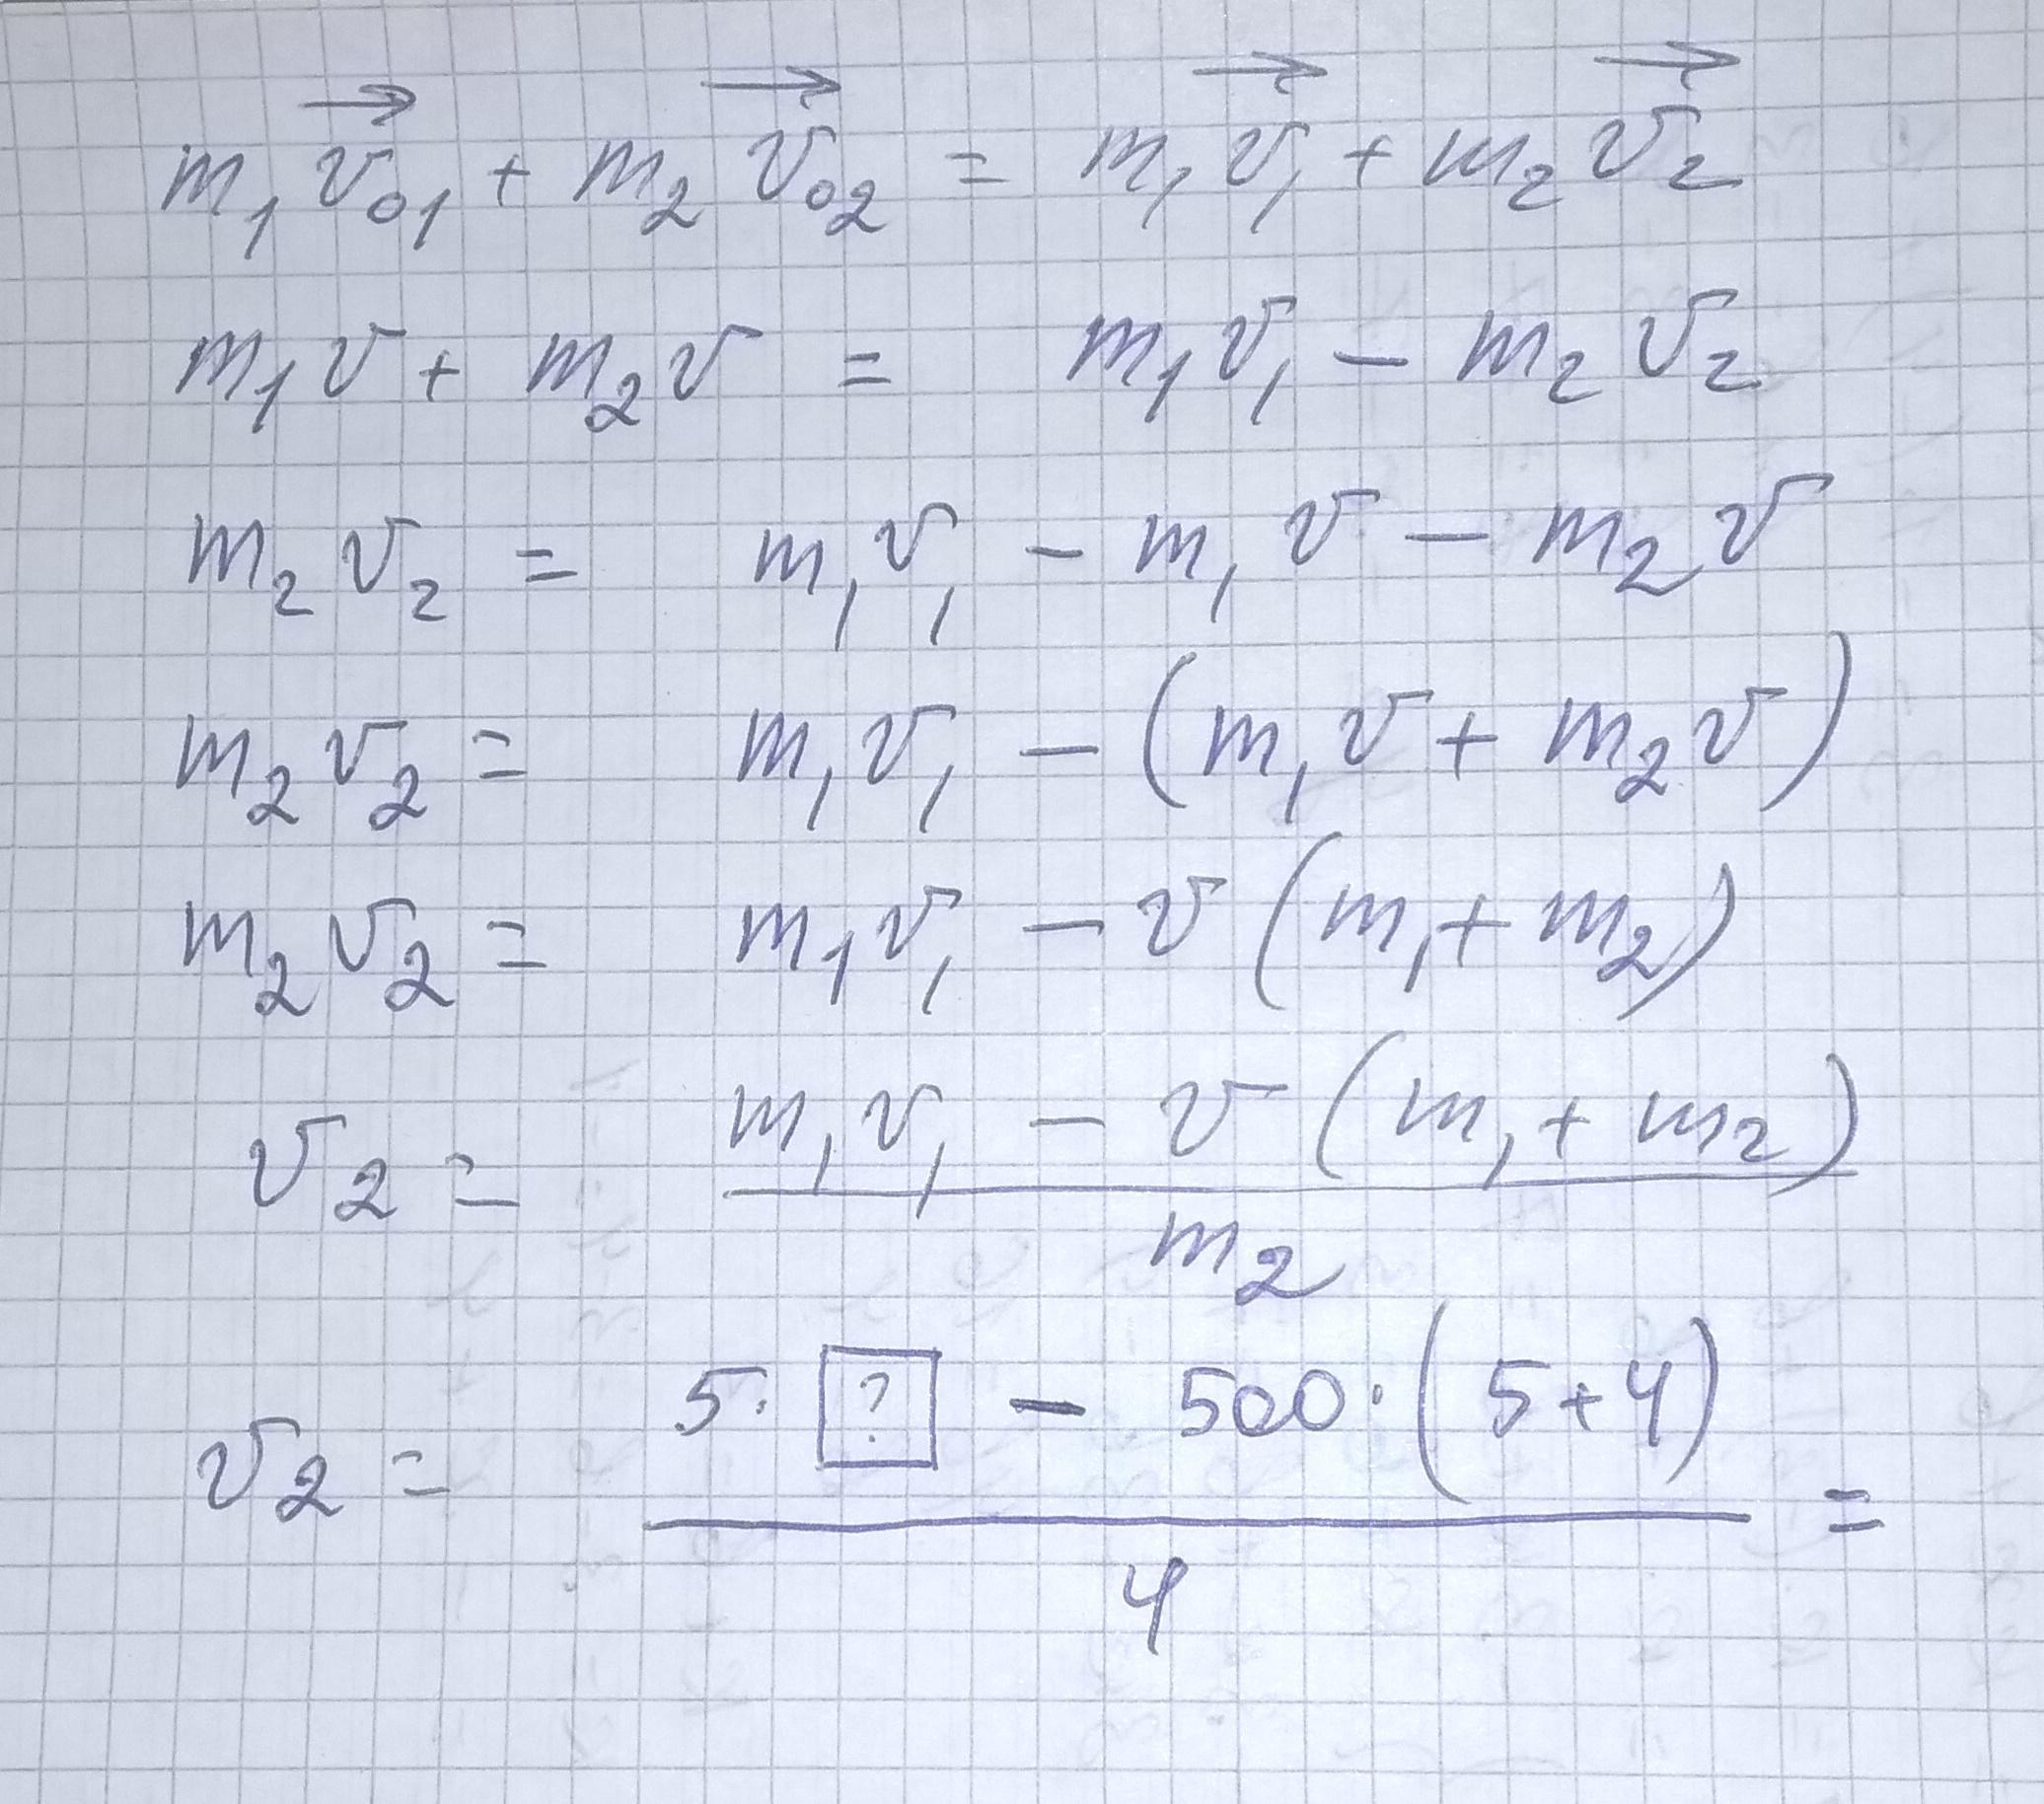 m₁ v⃗₀₁ + m₂ v⃗₀₂ = m₁ v⃗₁ + m₂ v⃗₂
m₁ v + m₂ v = m₁ v₁ − m₂ v₂
m₂ v₂ = m₁ v₁ − m₁ v − m₂ v
m₂ v₂ = m₁ v₁ − (m₁ v + m₂ v)
m₂ v₂ = m₁ v₁ − v (m₁ + m₂)
v₂ = (m₁ v₁ − v (m₁ + m₂)) / m₂
v₂ = (5 · [?] − 500 · (5 + 4)) / 4 =